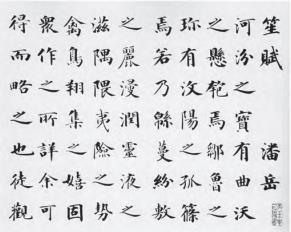 笙賦 潘岳
河汾之寶有曲沃
之懸匏焉鄒魯之
珎有汶陽之孤篠
焉若乃緜蔓紛敷
之麗浸潤靈液之
滋隅隈夷險之勢
禽鳥翔集之嬉固
衆作之所詳余可
得而略之也徒觀